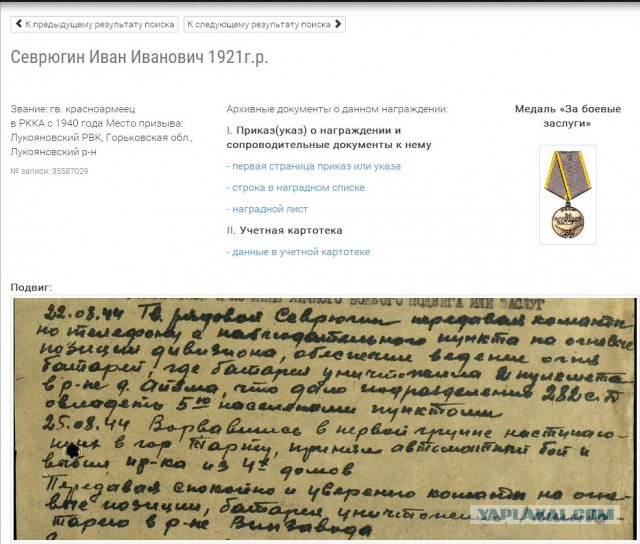 К предыдущему результату поиска
К следующему результату поиска
Севрюгин Иван Иванович 1921г.р.
Звание: гв. красноармеец
в РККА с 1940 года Место призыва:
Лукояновский РВК, Горьковская обл.,
Лукояновский р-н
№ записи: 35587029
Архивные документы о данном награждении:
I. Приказ(указ) о награждении и
сопроводительные документы к нему
- первая страница приказ или указа
- строка в наградном списке
- наградной лист
II. Учетная картотека
- данные в учетной картотеке
Медаль «За боевые
заслуги»
Подвиг:
ЛИЧНОГО БОЕВОГО ПОДВИГА ИЛИ ЗАСЛУГ
22.08.44 Гв. рядовой Севрюгин передавая команды
по телефону с наблюдательного пункта на огневые
позиции дивизиона, обеспечил ведение огня
батарей, где батарея уничтожила 2 пулемета
в р-не д. что дало подразделению 282 с.п
овладеть 5ю населенными пунктами
25.08.44 Ворвавшись в первой группе наступаю-
щих в гор Тарту, принял автоматный бой и
выбил пр-ка из 4х домов
Передавая спокойно и уверенно команды на огне-
вые позиции, батарея
тарею в р-не Винзавода
YAPLAKAL.COM